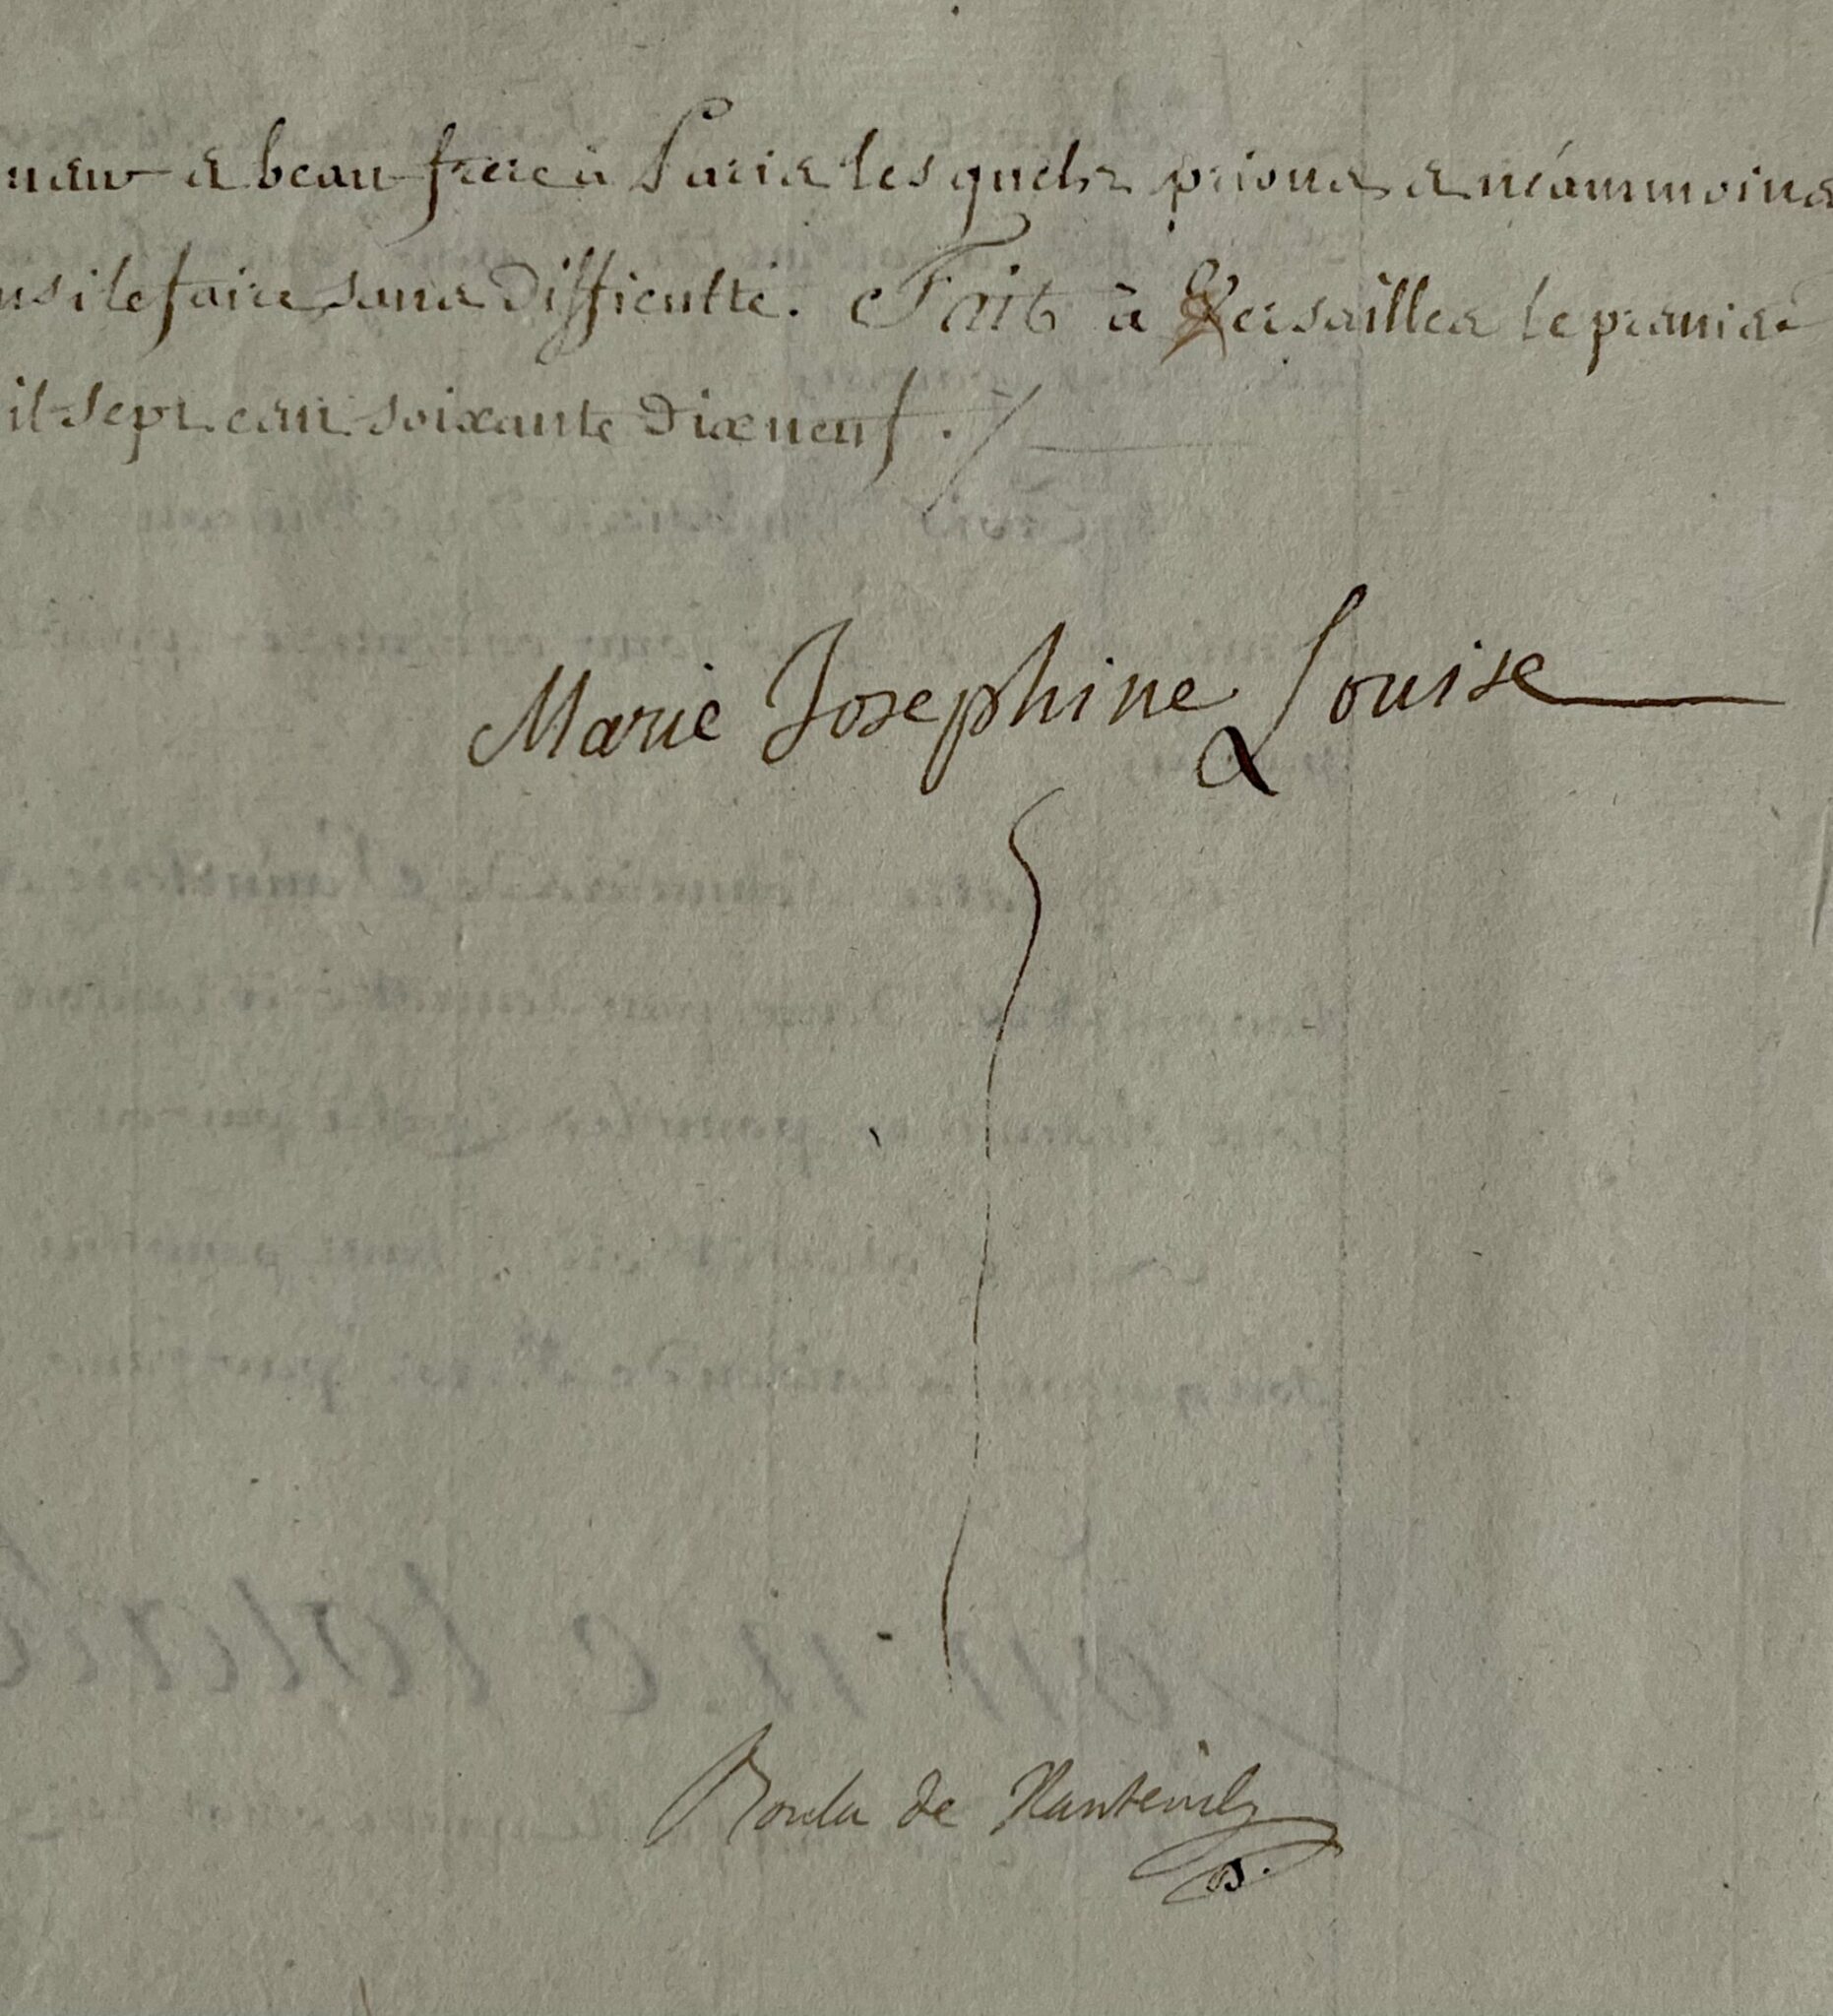 et beau frere à Paris lesquels prions et néammoins
le faire sans difficulté. Fait à Versailles le premier
il sept cent soixante dixneuf ./.
Marie Josephine Louise
de Nanteuil